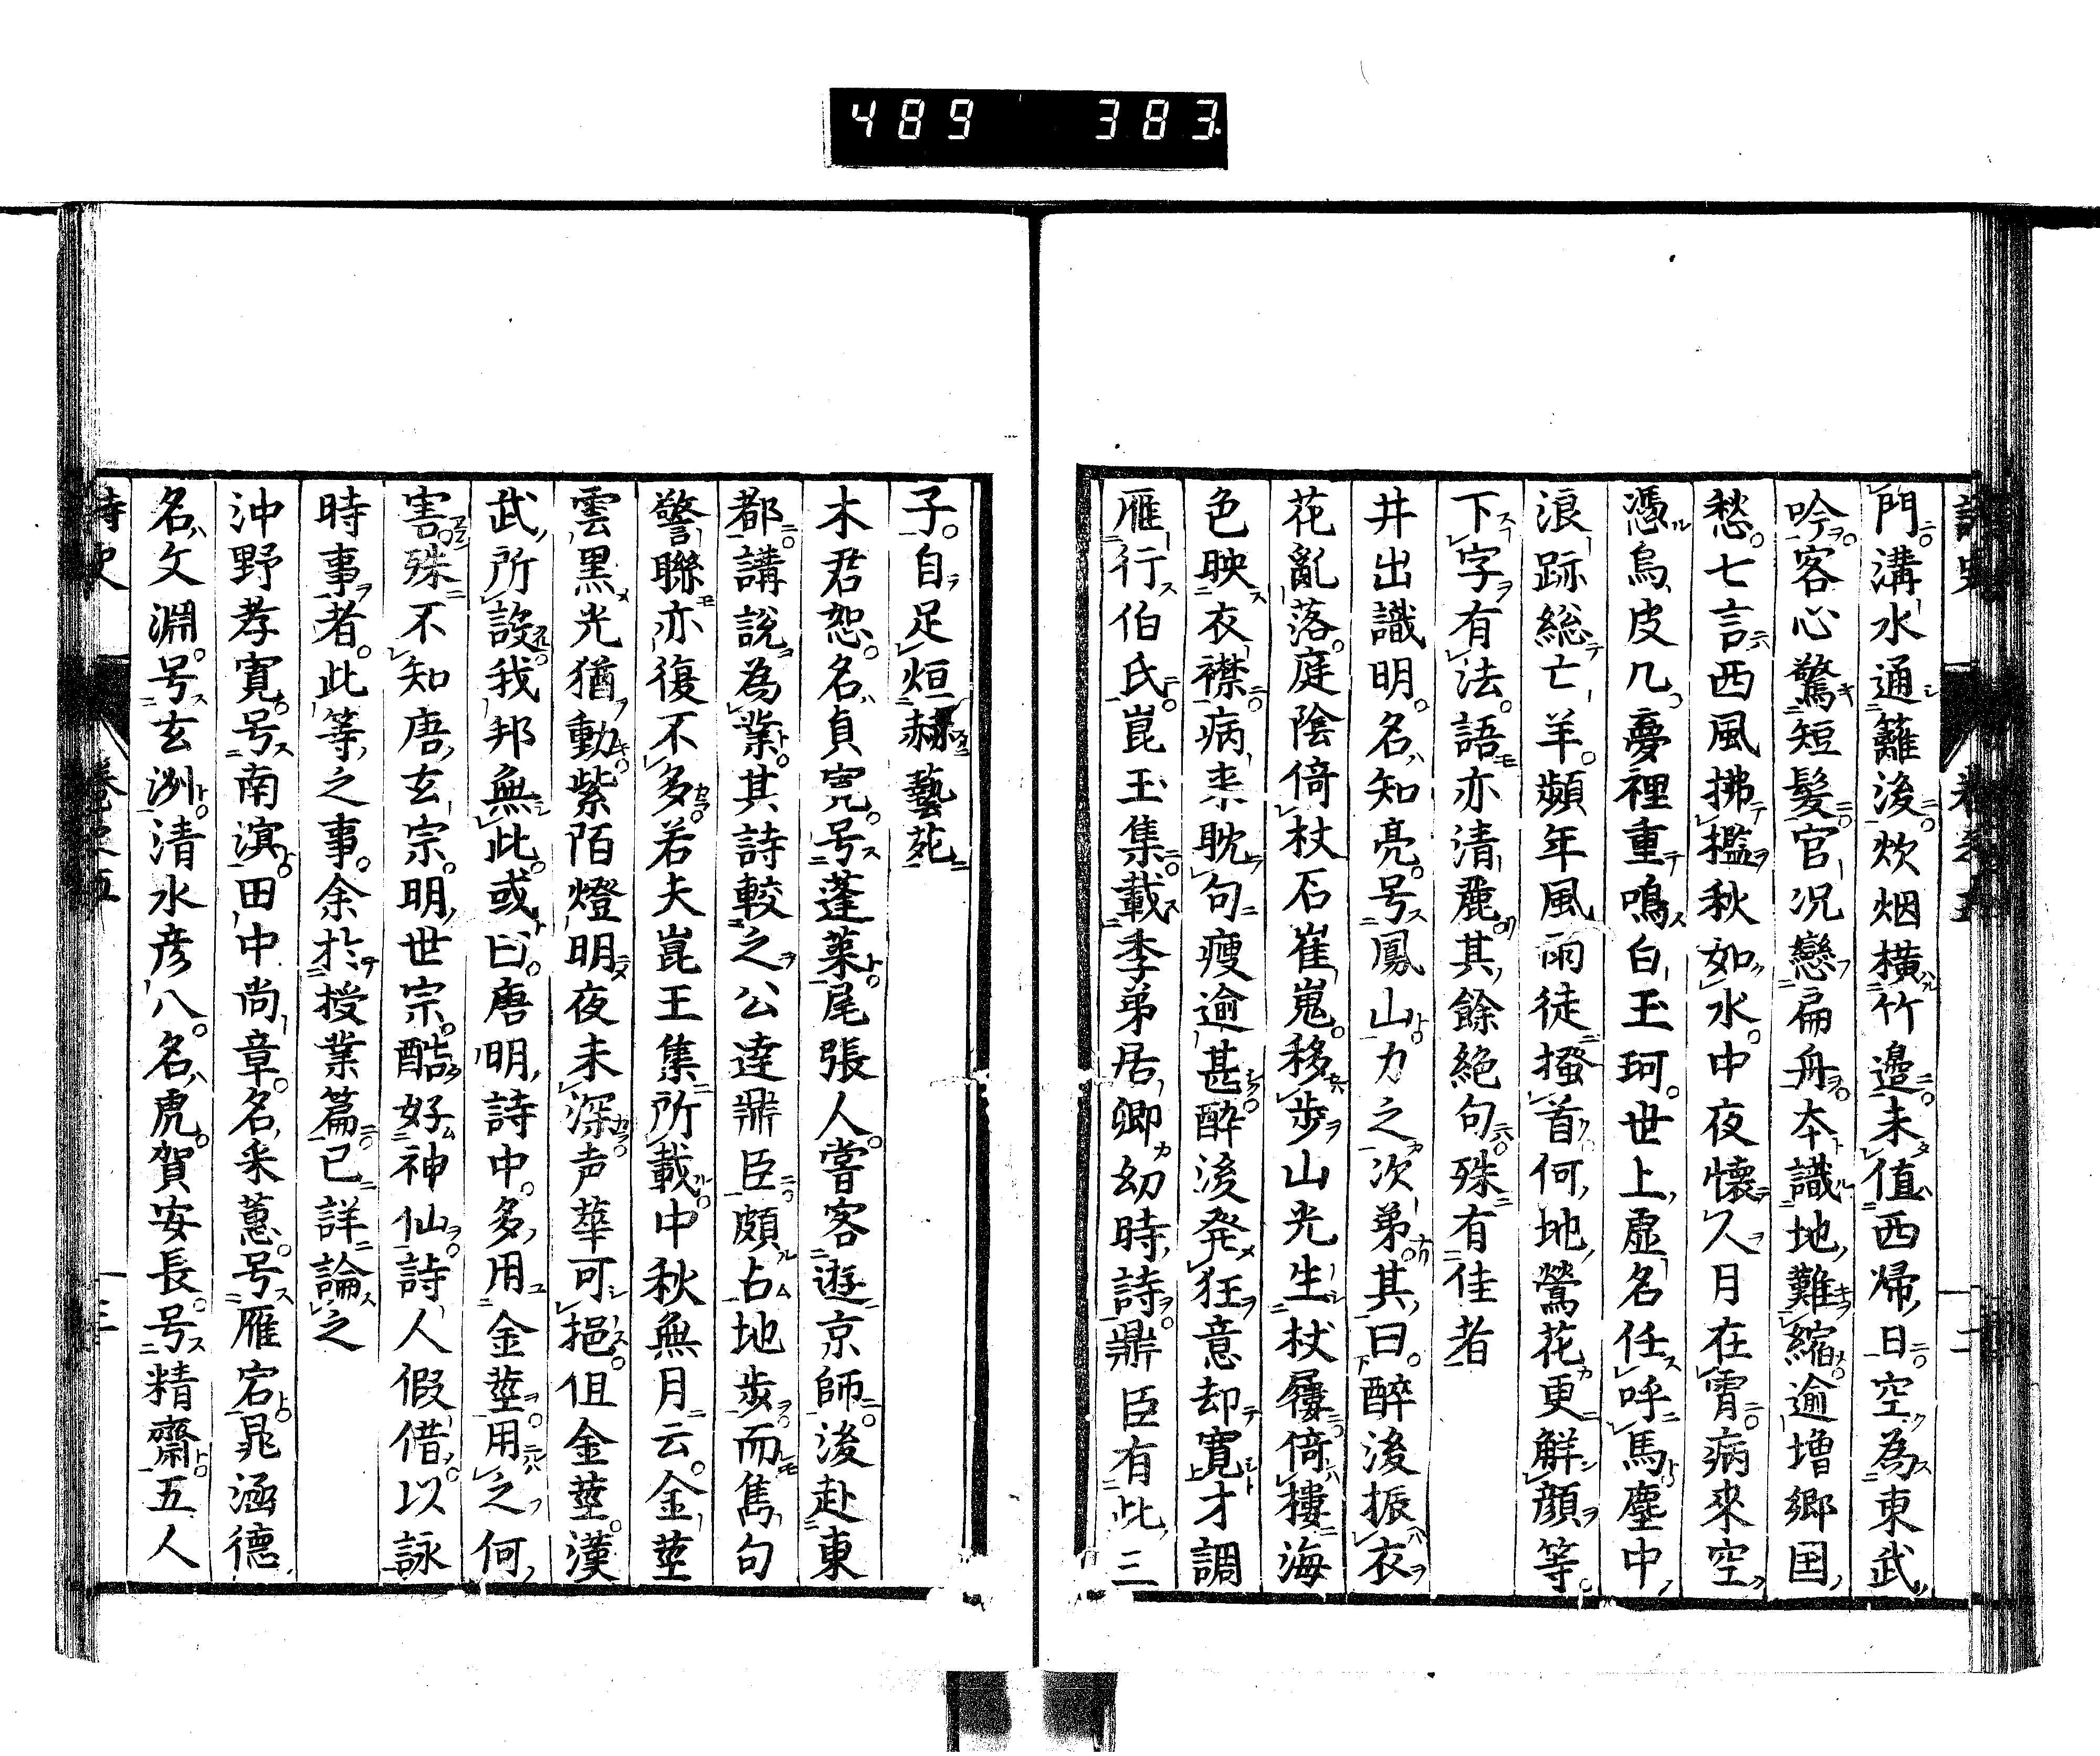 489 383
門溝水通籬後炊烟横竹邉未値西帰日空為東武
吟客心驚短髮官況戀扁舟本識地難縮逾増郷国
愁七言西風拂檻秋如水中夜懐人月在霄病來空
憑烏皮几夢裡重鳴白玉珂世上虚名任呼馬塵中
浪跡総亡羊頻年風雨徒掻首何地鶯花更解顔等
下字有法語亦清麗其餘絶句殊有佳者
井出識明名知亮号鳳山力之次弟其曰醉後振衣
花亂落庭陰倚杖石崔嵬移歩山光生杖屨倚樓海
色映衣襟病来耽句瘦逾甚醉後発狂意却寛才調
雁行伯氏崑玉集載季弟居卿幼時詩鼎臣有此三
子自足烜赫藝苑
木君恕名貞寛号蓬莱尾張人嘗客遊京師後赴東
都講説為業其詩較之公逹鼎臣頗占地歩而雋句
警聯亦復不多若夫崑玉集所載中秋無月云金莖
雲黒光猶動紫陌燈明夜未深声華可挹但金莖漢
武所設我邦無此或曰唐明詩中多用金莖用之何
害殊不知唐玄宗明世宗酷好神仙詩人假借以詠
時事者此等之事余於授業篇已詳論之
沖野孝寛号南溟田中尚章名采蕙号雁宕晁涵德
名文淵号玄洲清水彦八名虎賀安長号精齋五人
詩史 卷之五 十三